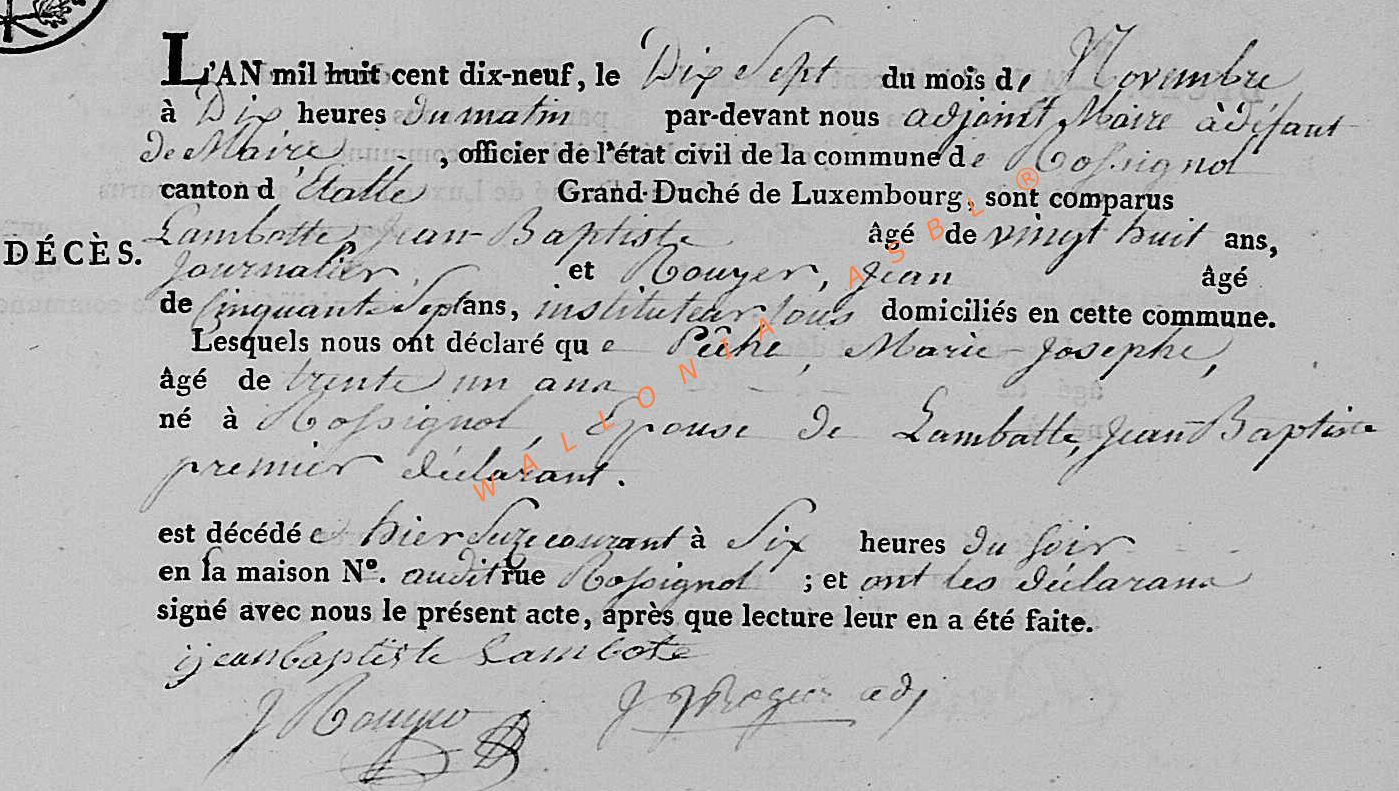 L'AN mil huit cent dix-neuf, le Dix Sept du mois de Novembre
à Dix heures du matin par-devant nous adjoint Maire à défaut
de Maire, officier de l'état civil de la commune de Rossignol
canton d'Etalle Grand-Duché de Luxembourg, sont comparus
DÉCÈS. Lambotte, Jean-Baptiste âgé de vingt huit ans,
journalier, et Rouyer, Jean âgé
de Cinquante Sept ans, instituteur tous domiciliés en cette commune.
Lesquels nous ont déclaré que Pêche, Marie-Josephe,
âgé de trente un ans
né à Rossignol, Epouse de Lambotte, Jean-Baptiste
premier déclarant.
est décédée hier Seize courant à Six heures du Soir
en la maison Nº. audit rue Rossignol ; et ont les déclarans
signé avec nous le présent acte, après que lecture leur en a été faite.
jeanbaptiste Lambote
J Rouyer J adj
WALLONIA ASBL ®